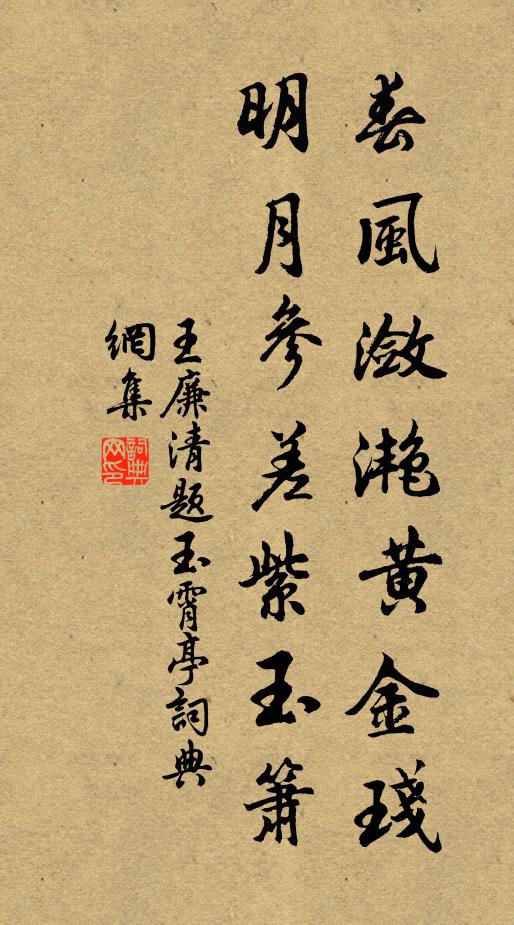 春風瀲滟黄金琖
明月參差紫玉簫
王廉清題玉霄亭詞典
網集
詞典網印